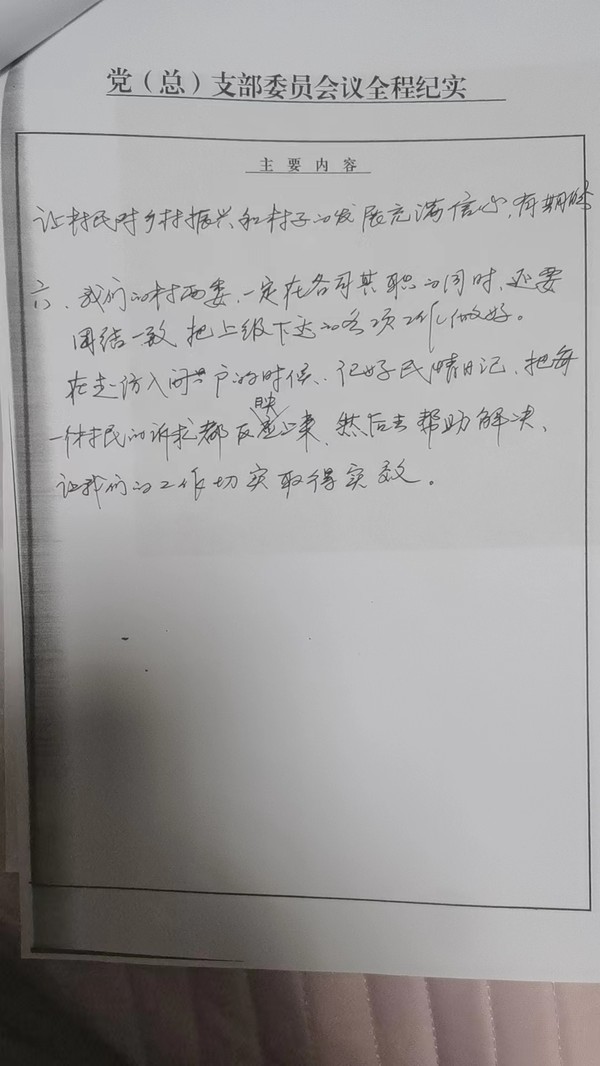 党（总）支部委员会议全程纪实
主要内容
让村民对乡村振兴和村子的发展充满信心，有期盼
六、我们的村两委，一定在各司其职的同时，还要
团结一致，把上级下达的各项工作做好。
在走访入户的时候，记好民情日记，把每
一个村民的诉求都反映上来，然后去帮助解决、
让我们的工作切实取得实效。